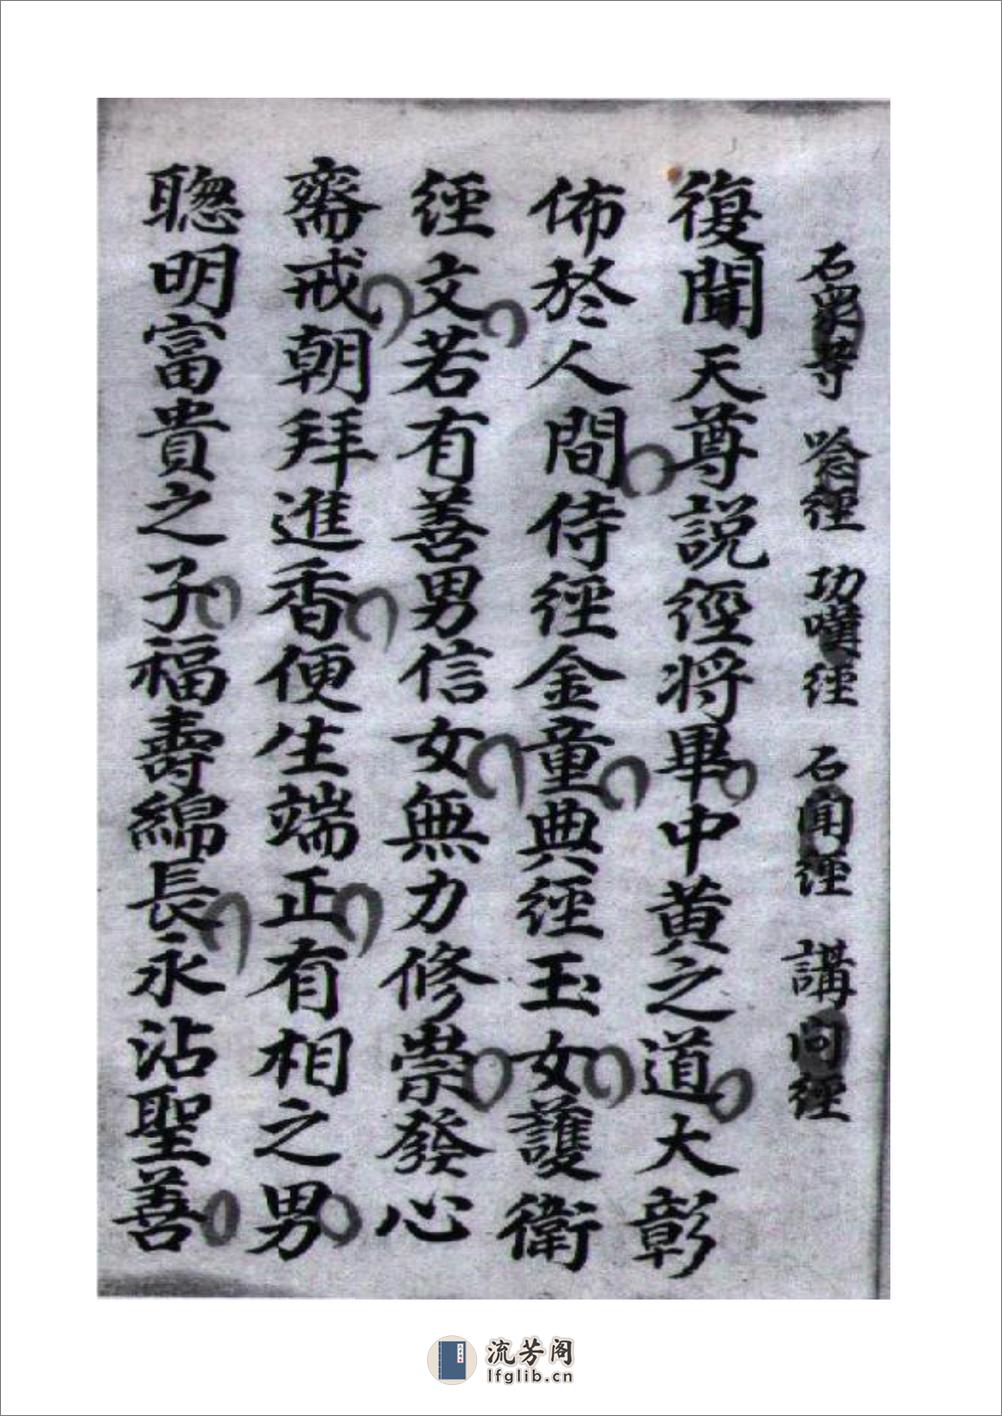 石眾等 唸經 功嘆經 石聞經 講問經
復聞天尊説經將畢中黄之道大彰
佈於人間侍經金童典經玉女護衛
經文若有善男信女無力修崇發心
齋戒朝拜進香便生端正有相之男
聰明富貴之子福壽綿長永沾聖善
流芳阁
lfglib.cn